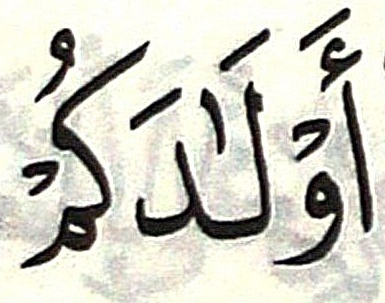 أَوْلَٰدَكُمْ